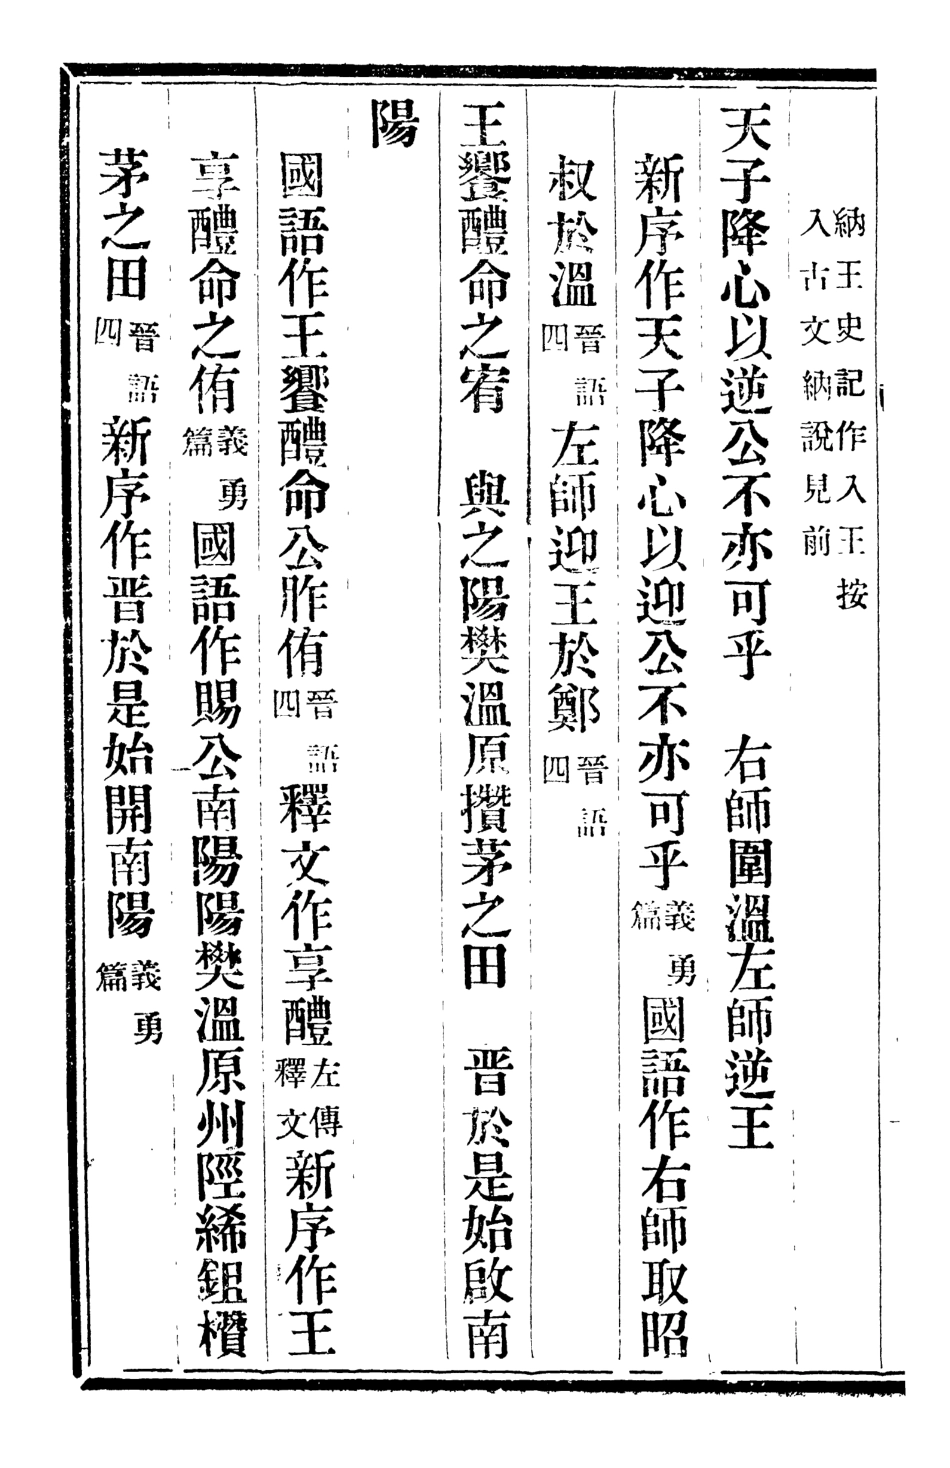 納王史記作入王按
入古文納說見前
天子降心以逆公不亦可乎　右師圍溫左師逆王
新序作天子降心以迎公不亦可乎義勇篇國語作右師取昭
叔於溫晉語四左師迎王於鄭晉語四
王饗醴命之宥　與之陽樊溫原攢茅之田　晉於是始啟南
陽
國語作王饗醴命公胙侑晉語四釋文作享醴左傳釋文新序作王
享醴命之侑義勇篇國語作賜公南陽陽樊溫原州陘絺鉏欑
茅之田晉語四新序作晉於是始開南陽義勇篇